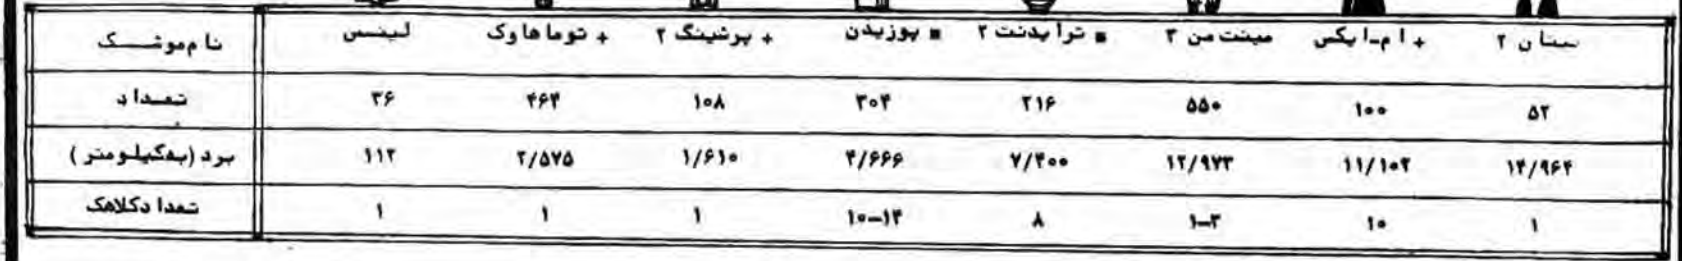 نام موشک لینس + توماهاوک + پرشینگ ۲ ▪ پوزیدن ▪ ترایدنت ۲ مینتمن ۳ + ام‌ـایکس ستان ۲
تعداد ۳۶ ۴۶۴ ۱۰۸ ۳۰۴ ۲۱۶ ۵۵۰ ۱۰۰ ۵۲
برد (به‌کیلومتر) ۱۱۲ ۲/۵۷۵ ۱/۶۱۰ ۴/۶۶۶ ۷/۴۰۰ ۱۲/۹۷۳ ۱۱/۱۰۲ ۱۴/۹۶۴
تعداد کلاهک ۱ ۱ ۱ ۱۰–۱۴ ۸ ۱–۳ ۱۰ ۱